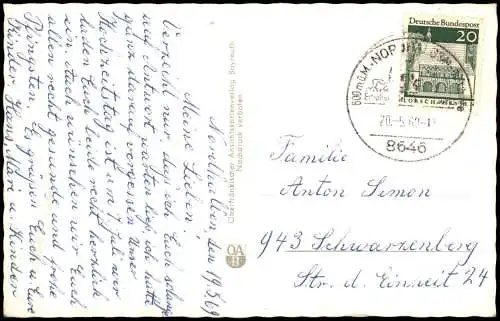 Nordhalben, den 19.5.69
Meine Lieben!
Verzeiht nur, daß ich Euch solange
auf Antwort warten ließ, ich hatte
ganz darauf vergessen. Unser
Hochzeitstag ist am 7. Juli wir
laden Euch beide recht herzlich
ein. Auch wünschen wir Euch
allen recht gesunde und frohe
Pfingsten. Es grüßen Euch u. Eure
Kinder Hans, Mari u. Kinder
Oberfränkischer Ansichtskartenverlag Bayreuth
Nachdruck verboten
OA
B
Deutsche Bundespost
20
LORSCH/HESSEN
600 m ü.M.-NORDHALBEN
20.-5.69-
8646
Familie
Anton Simon
943 Schwarzenberg
Str. d. Einheit 24